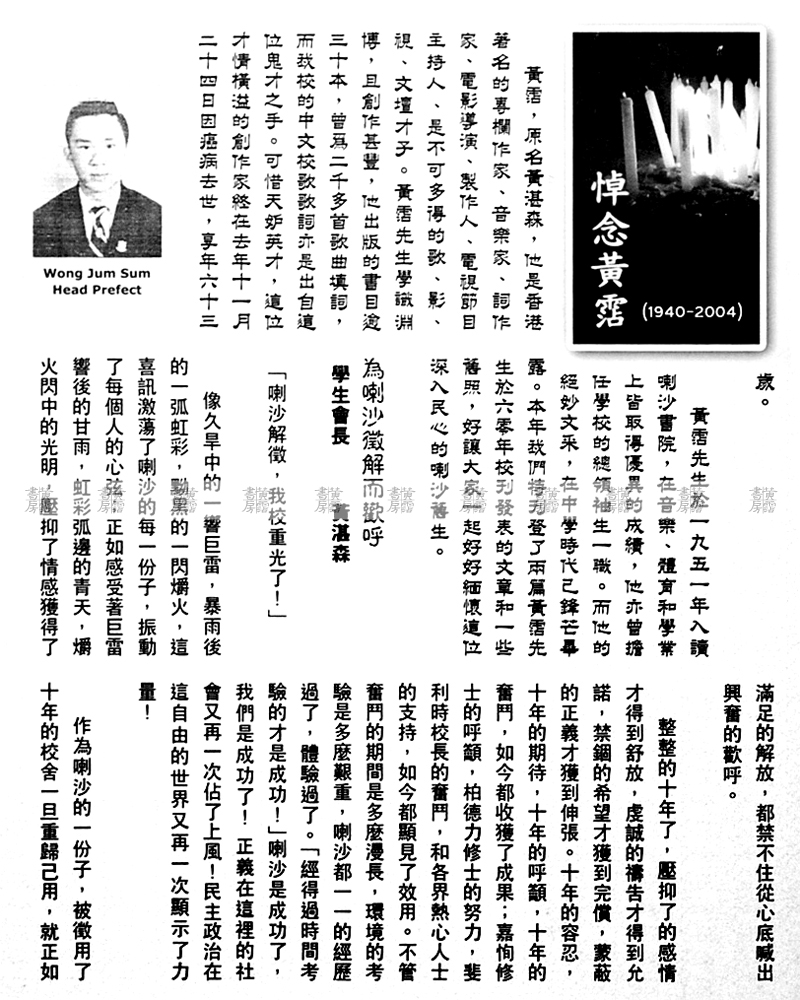 悼念黃霑
(1940-2004)
黃霑，原名黃湛森，他是香港
著名的專欄作家、音樂家、詞作
家、電影導演、製作人、電視節目
主持人、是不可多得的歌、影、
視、文壇才子。黃霑先生學識淵
博，且創作甚豐，他出版的書目逾
三十本，曾為二千多首歌曲填詞，
而我校的中文校歌歌詞亦是出自這
位鬼才之手。可惜天妒英才，這位
才情橫溢的創作家終在去年十一月
二十四日因癌病去世，享年六十三
Wong Jum Sum
Head Prefect
歲。
黃霑先生於一九五一年入讀
喇沙書院，在音樂、體育和學業
上皆取得優異的成績，他亦曾擔
任學校的總領袖生一職。而他的
絕妙文采，在中學時代已鋒芒畢
露。本年我們特刊登了兩篇黃霑先
生於六零年校刊發表的文章和一些
舊照，好讓大家一起好好緬懷這位
深入民心的喇沙舊生。
為喇沙徵解而歡呼
學生會長　黃湛森
「喇沙解徵，我校重光了！」
像久旱中的一響巨雷，暴雨後
的一弧虹彩，黝黑的一閃爝火，這
喜訊激荡了喇沙的每一份子，振動
了每個人的心弦；正如感受著巨雷
響後的甘雨，虹彩弧邊的青天，爝
火閃中的光明，壓抑了情感獲得了
滿足的解放，都禁不住從心底喊出
興奮的歡呼。
整整的十年了，壓抑了的感情
才得到舒放，虔誠的禱告才得到允
諾，禁錮的希望才獲到完償，蒙蔽
的正義才獲到伸張。十年的容忍，
十年的期待，十年的呼籲，十年的
奮鬥，如今都收獲了成果；嘉恂修
士的呼籲，柏德力修士的努力，斐
利時校長的奮鬥，和各界熱心人士
的支持，如今都顯見了效用。不管
奮鬥的期間是多麼漫長，環境的考
驗是多麼艱重，喇沙都一一的經歷
過了，體驗過了。「經得過時間考
驗的才是成功！」喇沙是成功了，
我們是成功了！ 正義在這裡的社
會又再一次佔了上風！民主政治在
這自由的世界又再一次顯示了力
量！
作為喇沙的一份子，被徵用了
十年的校舍一旦重歸己用，就正如
黃霑書房